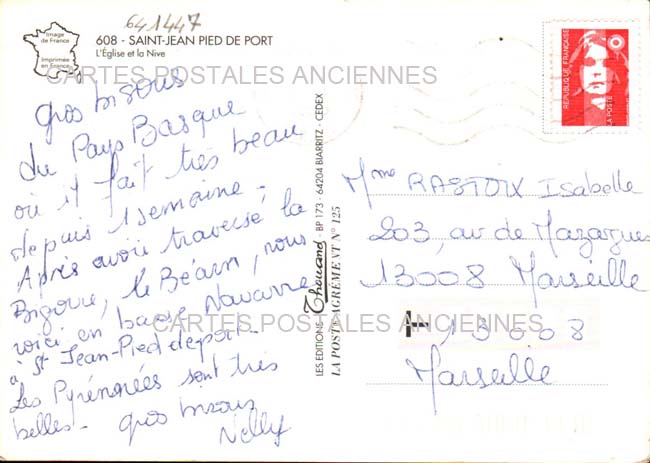 641447
Image
de France
Imprimée
en France
608 - SAINT-JEAN PIED DE PORT
L'Église et la Nive
CARTES POSTALES ANCIENNES
gros bisous
du Pays Basque
où il fait très beau
depuis 1 semaine.
Après avoir traversé la
Bigorre, le Béarn, nous
voici en basse Navarre
à St Jean-Pied deport.
Les Pyrénnées sont très
belles. gros bisous
Nelly
LES EDITIONS Thouand - BP 173 - 64204 BIARRITZ - CEDEX
LA POSTE AGRÉMENT N° 125
REPUBLIQUE FRANÇAISE
LA POSTE
Mme RASTOIX Isabelle
203, av de Mazargues
13008 Marseille
CARTES POSTALES ANCIENNES
T 13008
Marseille